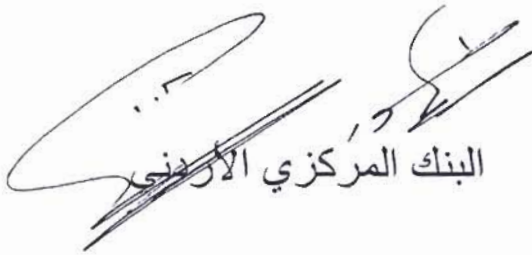 البنك المركزي الأردني